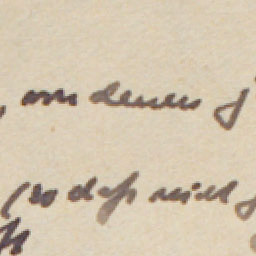 , von denen j
(so daß nicht